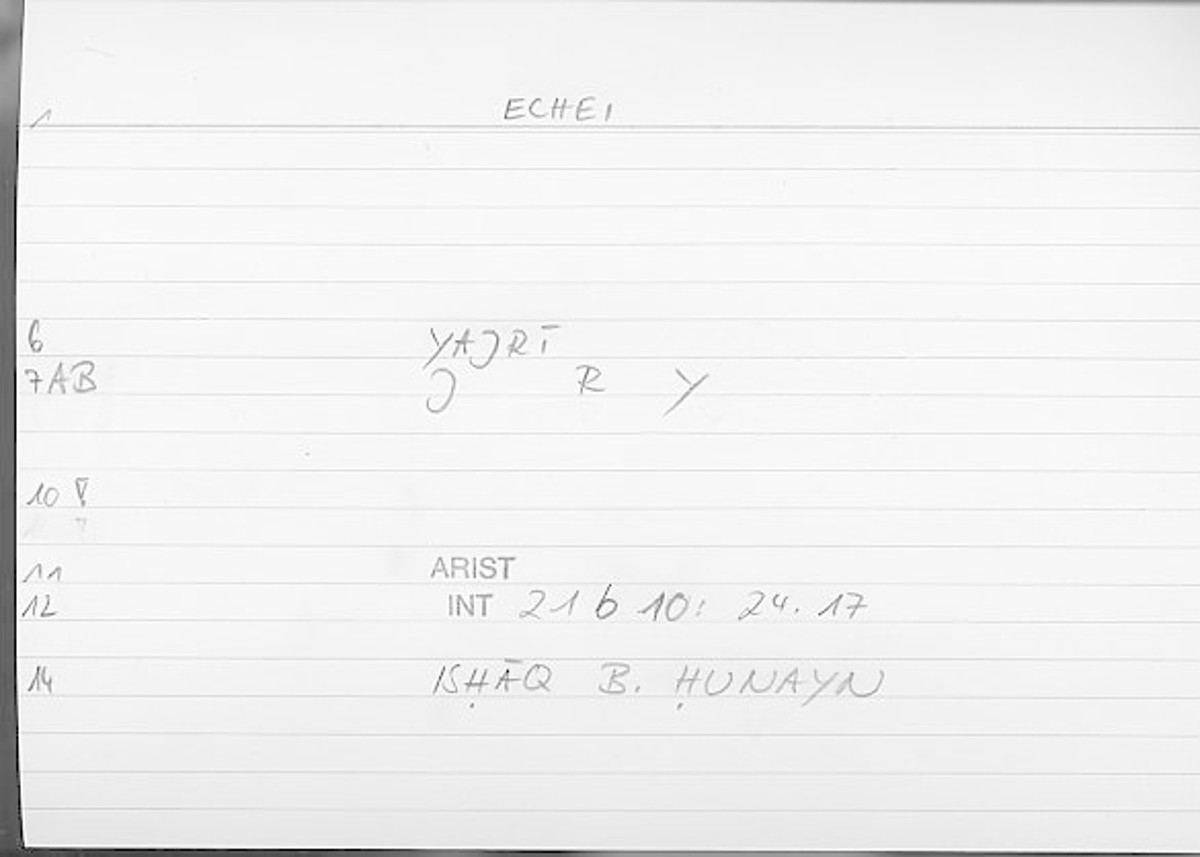 1 ECHEI
6 YAJRĪ
7AB J R Y
10
11 ARIST
12 INT 21 b 10: 24.17
14 ISḤĀQ B. ḤUNAYN